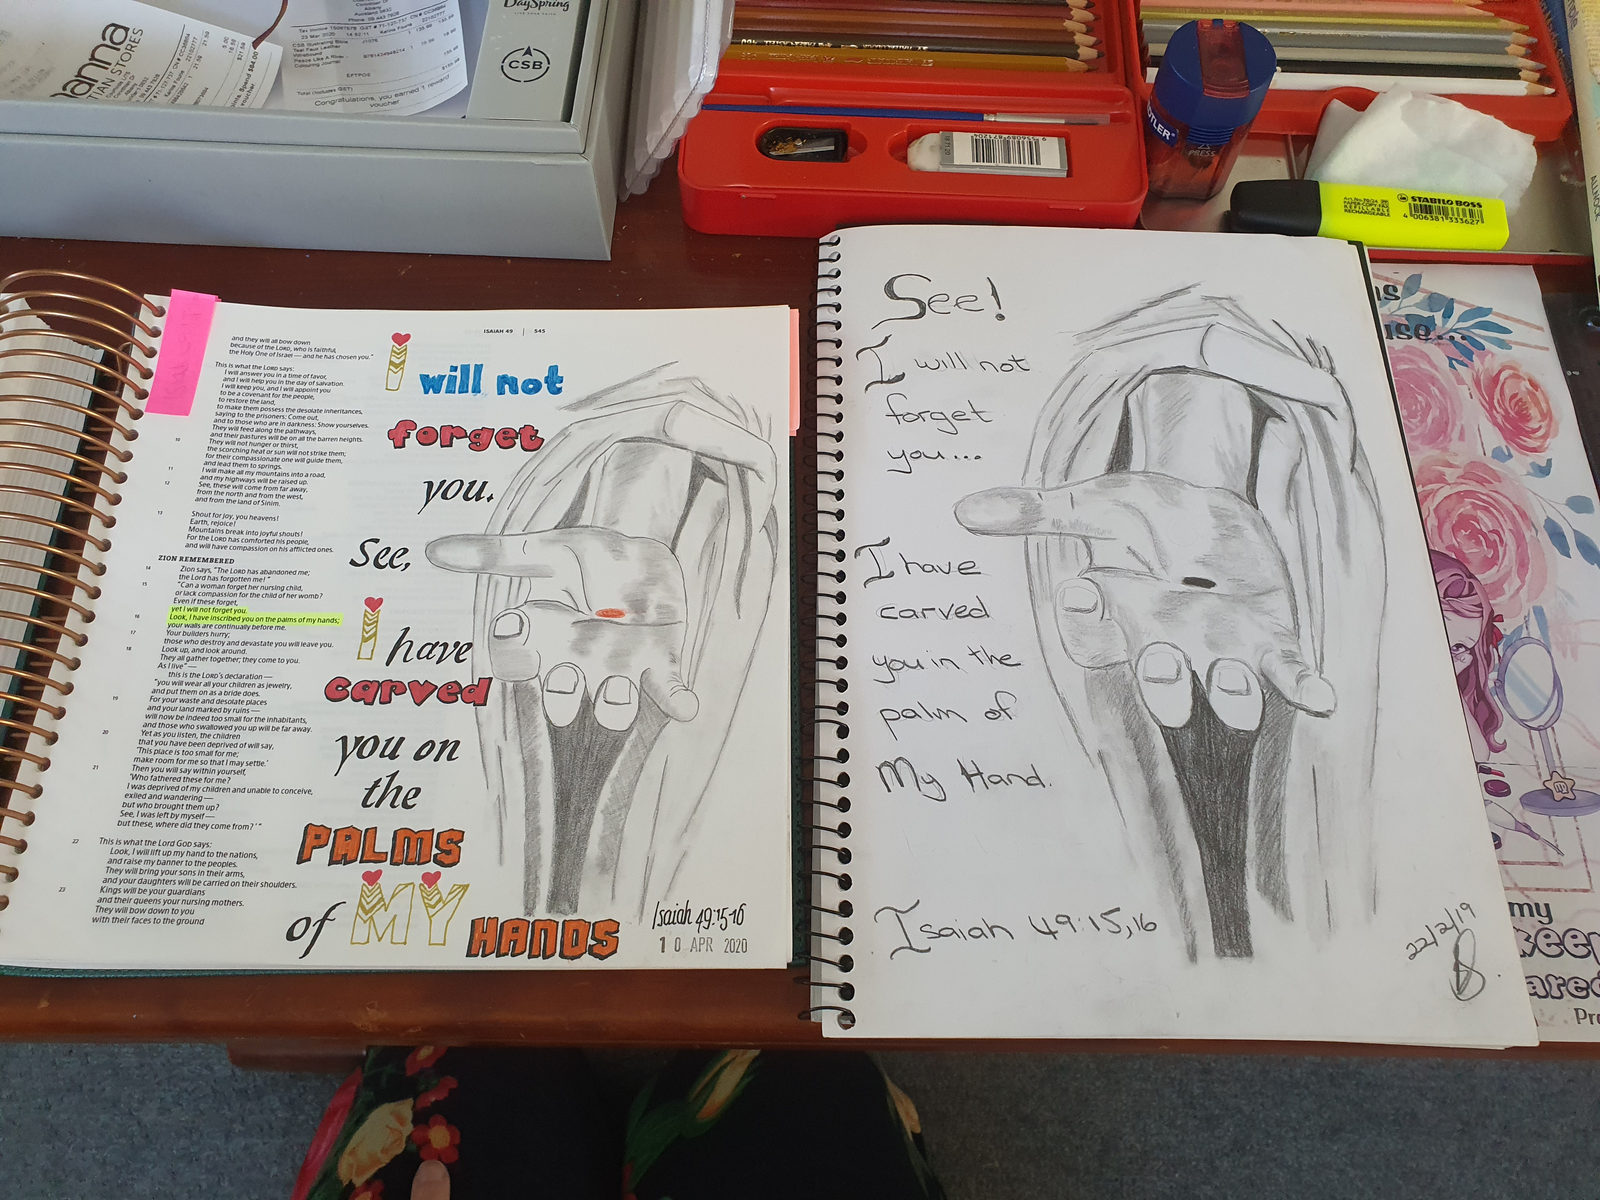 DaySpring
CSB
anna
TIAN STORES
Phone: 09 443 7628
23 Mar 2020
EFTPOS
Total (includes GST)
Congratulations, you earned 1 reward
voucher
9556089871204
PRESS
STABILO BOSS
4 006381 333627
ISAIAH 49 | 545
and they will all bow down
because of the LORD, who is faithful,
the Holy One of Israel — and he has chosen you."
This is what the LORD says:
I will answer you in a time of favor,
and I will help you in the day of salvation.
I will keep you, and I will appoint you
to be a covenant for the people,
to restore the land,
to make them possess the desolate inheritances,
saying to the prisoners: Come out,
and to those who are in darkness: Show yourselves.
They will feed along the pathways,
and their pastures will be on all the barren heights.
10 They will not hunger or thirst,
the scorching heat or sun will not strike them;
for their compassionate one will guide them,
and lead them to springs.
11 I will make all my mountains into a road,
and my highways will be raised up.
12 See, these will come from far away,
from the north and from the west,
and from the land of Sinim.
13 Shout for joy, you heavens!
Earth, rejoice!
Mountains break into joyful shouts!
For the LORD has comforted his people,
and will have compassion on his afflicted ones.
ZION REMEMBERED
14 Zion says, "The LORD has abandoned me;
the Lord has forgotten me!"
15 "Can a woman forget her nursing child,
or lack compassion for the child of her womb?
Even if these forget,
yet I will not forget you.
16 Look, I have inscribed you on the palms of my hands;
your walls are continually before me.
17 Your builders hurry;
those who destroy and devastate you will leave you.
18 Look up, and look around.
They all gather together; they come to you.
As I live" —
this is the LORD's declaration —
"you will wear all your children as jewelry,
and put them on as a bride does.
19 For your waste and desolate places
and your land marked by ruins —
will now be indeed too small for the inhabitants,
and those who swallowed you up will be far away.
20 Yet as you listen, the children
that you have been deprived of will say,
'This place is too small for me;
make room for me so that I may settle.'
21 Then you will say within yourself,
'Who fathered these for me?
I was deprived of my children and unable to conceive,
exiled and wandering —
but who brought them up?
See, I was left by myself —
but these, where did they come from?'"
22 This is what the Lord GOD says:
Look, I will lift up my hand to the nations,
and raise my banner to the peoples.
They will bring your sons in their arms,
and your daughters will be carried on their shoulders.
23 Kings will be your guardians
and their queens your nursing mothers.
They will bow down to you
with their faces to the ground
I will not
forget
you.
See,
I have
carved
you on
the
PALMS
of MY HANDS
Isaiah 49:15-16
10 APR 2020
See!
I will not
forget
you...
I have
carved
you in the
palm of
My Hand.
Isaiah 49:15,16
22/2/19
use...
my
keep
ared
Pro